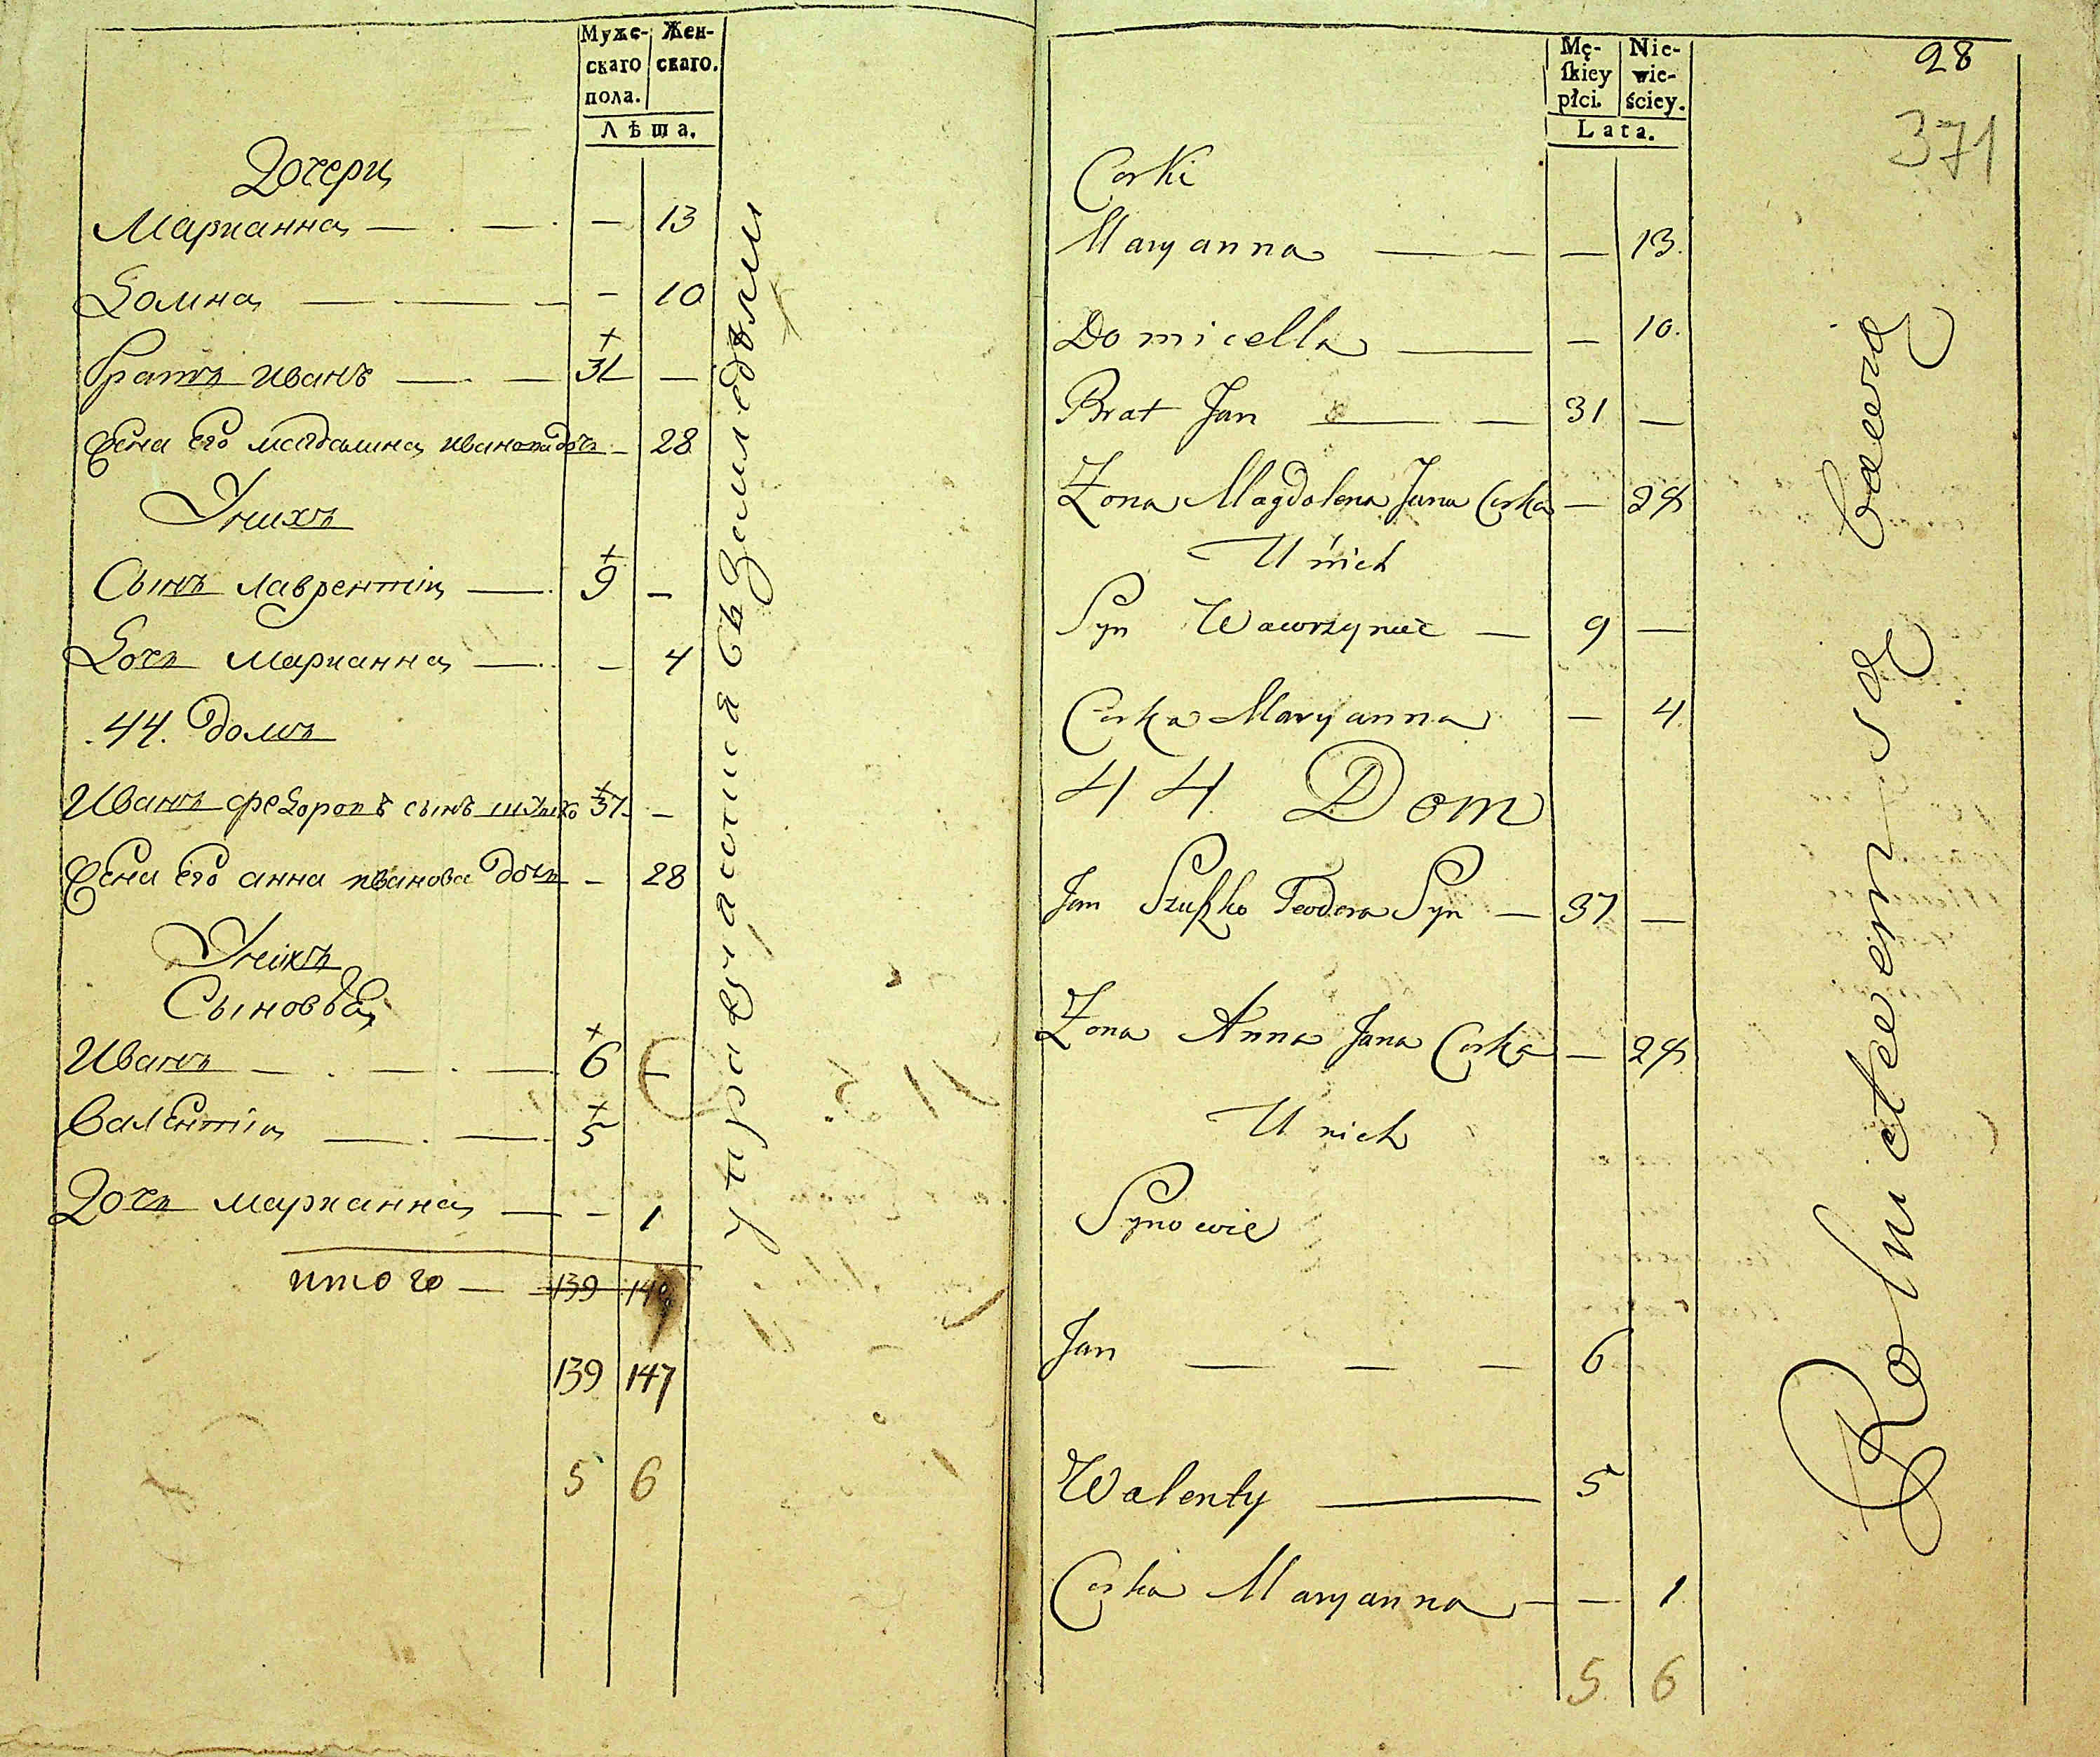 Муже-
скаго
пола.
Жен-
скаго.
Лѣта.
Дочери
Марианна — — — 13
Домна — — — 10
Братъ Иванъ — — 31 —
Жена его магдалина иванова дочь — 28
У нихъ
Сынъ лаврентій — 9 —
Дочь марианна — — 4
44. домъ
Иванъ федоровъ сынъ шушко 37 —
Жена его анна иванова дочь — 28
У нихъ
Сыновья
Иванъ — — — 6 —
Валентій — — 5
Дочь марианна — — 1
итого — 139
139 147
5 6
28
371
Mę-
ſkiey
płci.
Nie-
wie-
ściey.
Lata.
Corki
Maryanna — — — 13.
Domicella — — 10.
Brat Jan — — 31 —
Zona Magdalena Jana Corka — 28
U nich
Syn Wawrzyniec — 9 —
Corka Maryanna — 4.
44 Dom
Jan Szuszko Teodora Syn — 37 —
Zona Anna Jana Corka — 28
U nich
Synowie
Jan — — — 6
Walenty — 5
Corka Maryanna — — 1
5 6
Rolnictwem się bawią